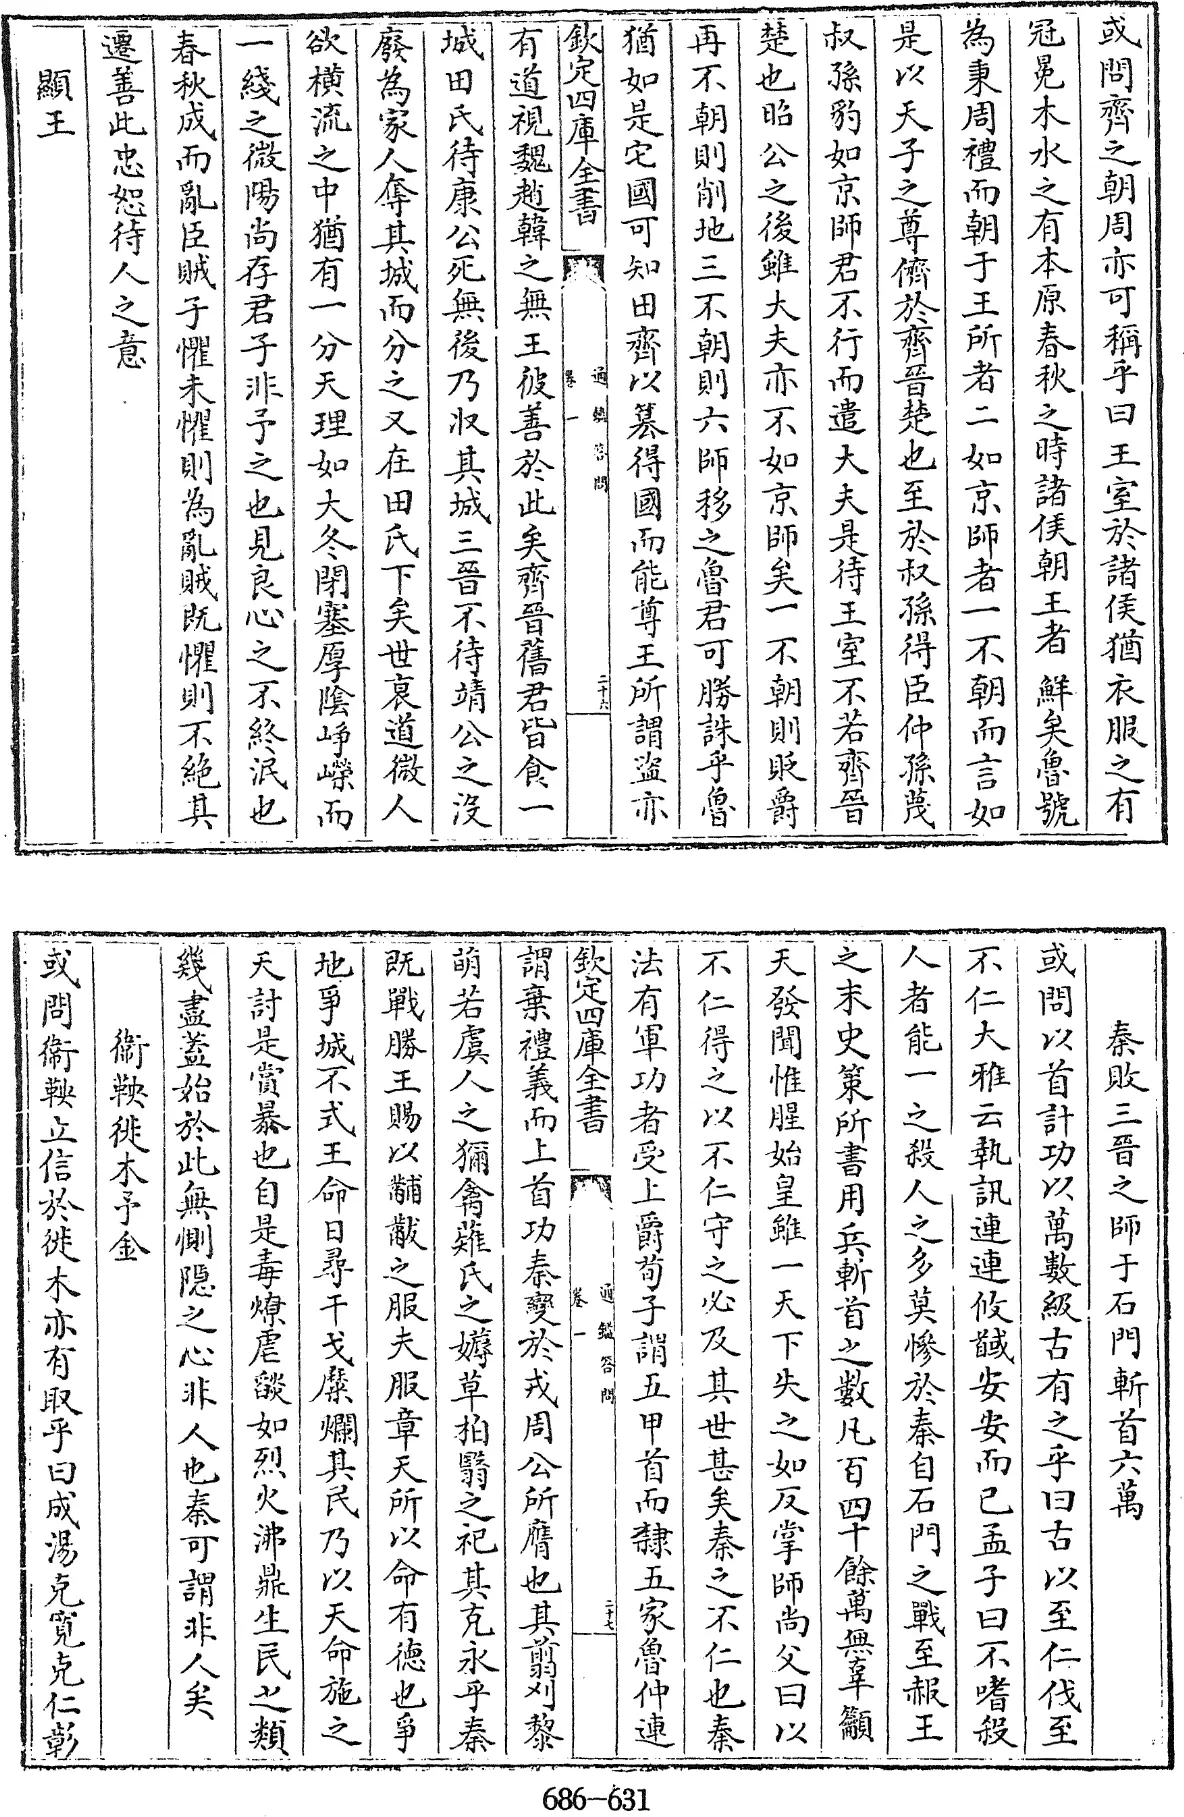 或問齊之朝周亦可稱乎曰王室於諸侯猶衣服之有
冠冕木水之有本原春秋之時諸侯朝王者鮮矣魯號
為秉周禮而朝于王所者二如京師者一不朝而言如
是以天子之尊儕於齊晉楚也至於叔孫得臣仲孫蔑
叔孫豹如京師君不行而遣大夫是待王室不若齊晉
楚也昭公之後雖大夫亦不如京師矣一不朝則貶爵
再不朝則削地三不朝則六師移之魯君可勝誅乎魯
猶如是宅國可知田齊以篡得國而能尊王所謂盜亦
欽定四庫全書
通鑑答問
卷一
二十六
有道視魏趙韓之無王彼善於此矣齊晉舊君皆食一
城田氏待康公死無後乃收其城三晉不待靖公之沒
廢為家人奪其城而分之又在田氏下矣世衰道微人
欲橫流之中猶有一分天理如大冬閉塞厚陰崢嶸而
一綫之微陽尚存君子非予之也見良心之不終泯也
春秋成而亂臣賊子懼未懼則為亂賊既懼則不絕其
遷善此忠恕待人之意
顯王
秦敗三晉之師于石門斬首六萬
或問以首計功以萬數級古有之乎曰古以至仁伐至
不仁大雅云執訊連連攸馘安安而已孟子曰不嗜殺
人者能一之殺人之多莫慘於秦自石門之戰至赧王
之末史策所書用兵斬首之數凡百四十餘萬無辜籲
天發聞惟腥始皇雖一天下失之如反掌師尚父曰以
不仁得之以不仁守之必及其世甚矣秦之不仁也秦
法有軍功者受上爵荀子謂五甲首而隸五家魯仲連
欽定四庫全書
通鑑答問
卷一
二十七
謂棄禮義而上首功秦變於戎周公所膺也其翦刈黎
萌若虞人之獮禽薙氏之媷草拍翳之祀其克永乎秦
既戰勝王賜以黼黻之服夫服章天所以命有德也爭
地爭城不式王命日尋干戈糜爛其民乃以天命施之
天討是賞暴也自是毒燎虐燄如烈火沸鼎生民之類
幾盡蓋始於此無惻隱之心非人也秦可謂非人矣
衞鞅徙木予金
或問衞鞅立信於徙木亦有取乎曰成湯克寬克仁彰
686—631